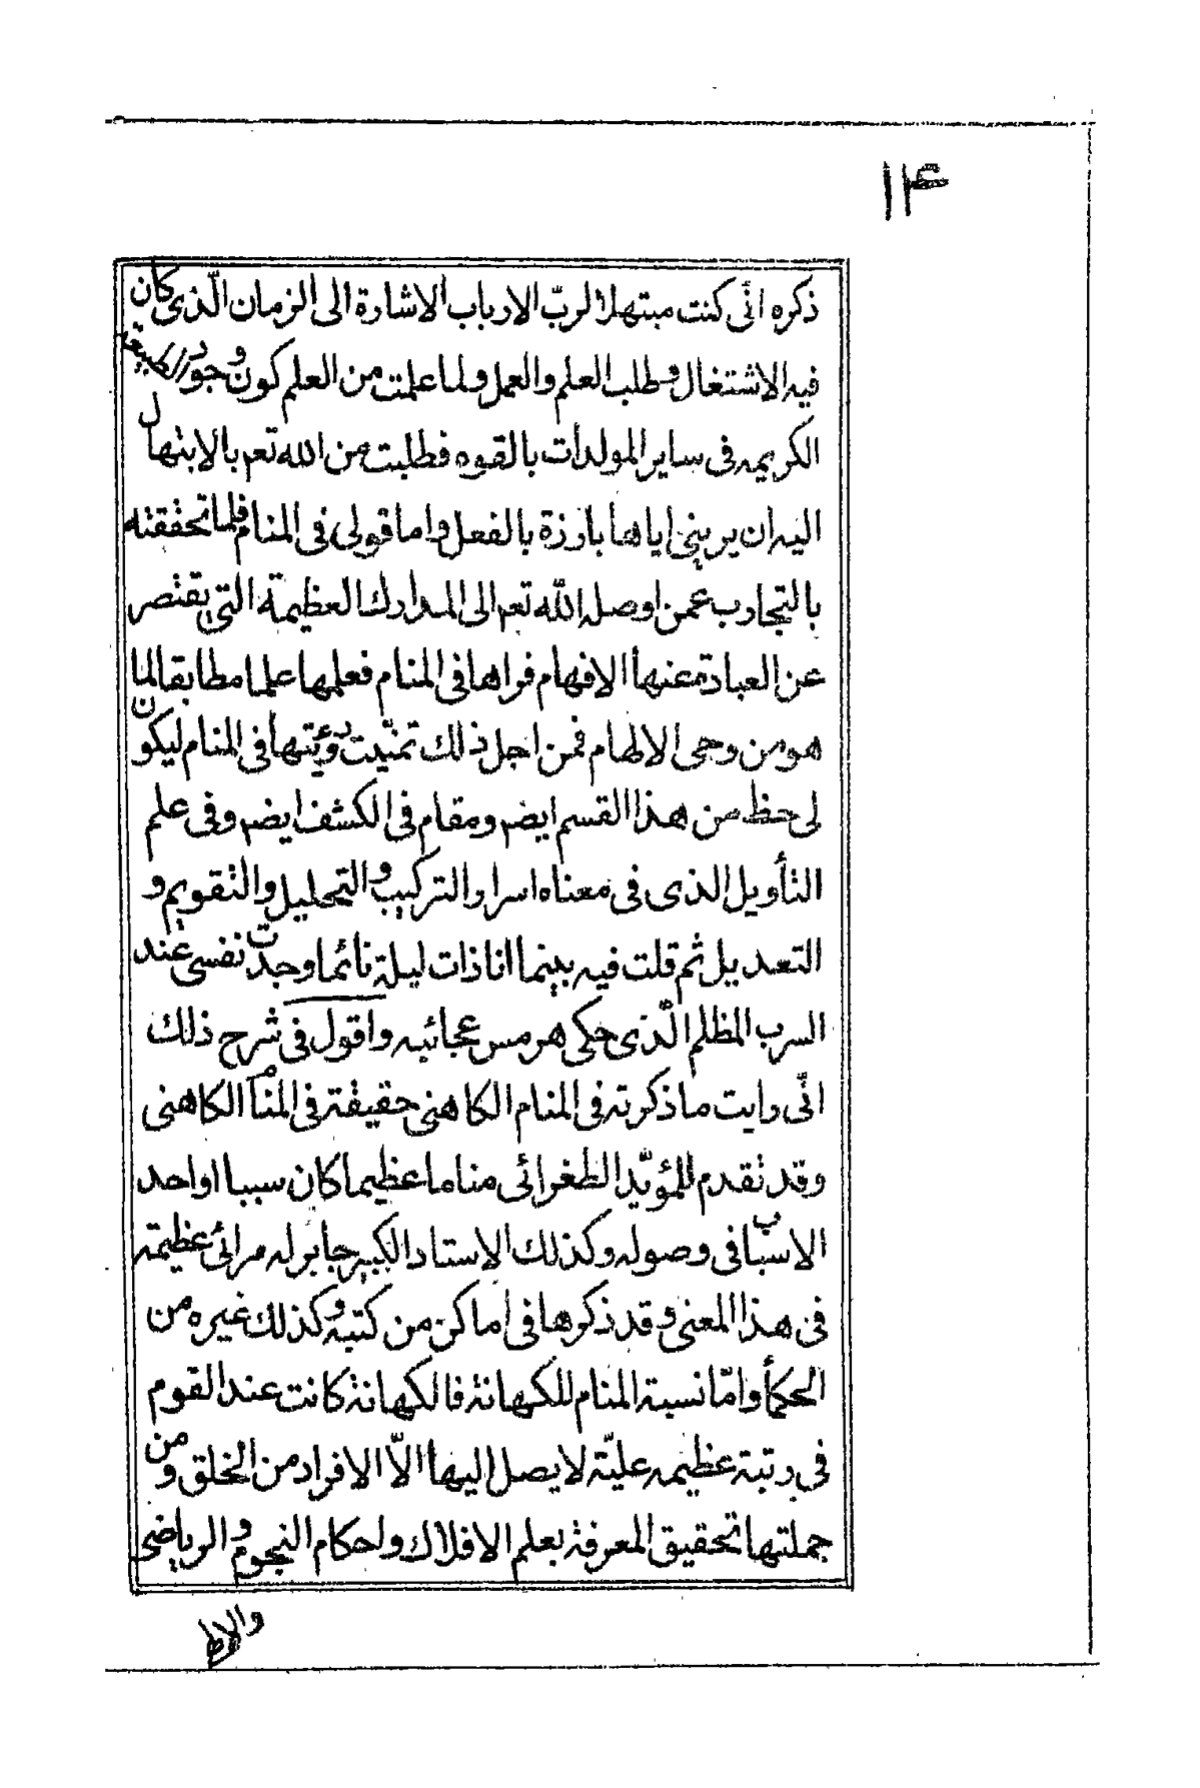 ۱۴
ذكره انّى كنت مبتهلا لربّ الارباب الاشارة الى الزمان الّذى كان
فيه الاشتغال وطلب العلم والعمل ولما علمت من العلم كون وجود الطبيعة
الكريمه فى ساير المولدات بالقوه فطلبت من الله تعم بالابتهال
اليه ان يرينى اياها بارزة بالفعل واما قولى فى المنام فلما تحققته
بالتجارب عمن اوصله الله تعم الى المدارك العظيمة التى يقتصر
عن العبادة عنها الافهام فراها فى المنام فعلمها علما مطابقا لما
هو من وحى الالهام فمن اجل ذلك تمنّيت رؤيتها فى المنام ليكون
لى حظ من هذا القسم ايضم ومقام فى الكشف ايضم وفى علم
التأويل الذى فى معناه اسرار التركيب والتحليل والتقويم و
التعديل ثم قلت فيه بينما انا ذات ليلة نائما وجدت نفسى عند
السرب المظلم الّذى حكى هرمس عجائبه واقول فى شرح ذلك
انّى رايت ما ذكرته فى المنام الكاهنى حقيقة فى المنام الكاهنى
وقد تقدم للمؤيّد الطغرائى مناما عظيما كان سببا او احد
الاسباب فى وصوله وكذلك الاستاد الكبير جابر له مرائى عظيمة
فى هذا المعنى وقد ذكرها فى اماكن من كتبه وكذلك غيره من
الحكمأ وامّا نسبة المنام للكهانة فالكهانة كانت عند القوم
فى رتبة عظيمه عليّة لا يصل اليها الاّ الافراد من الخلق ومن
جملتها تحقيق المعرفة بعلم الافلاك واحكام النجوم والرياضى